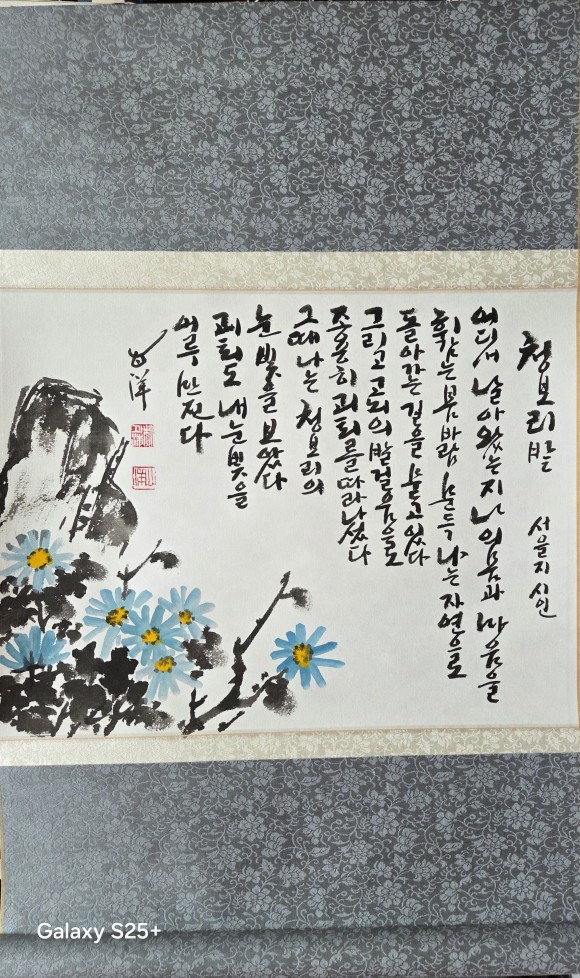 청보리밭 서을지 시인
어디서 날아왔는지 나의 몸과 마음을
휘감는 봄바람 문득 나는 자연으로
돌아가는 길을 묻고 있다
그리고 고뇌의 발걸음으로
종용히 괴퇴를 따라나섰다
그때 나는 청보리의
눈빛을 보았다
괴퇴도 내 눈빛을
어루만진다
Galaxy S25+